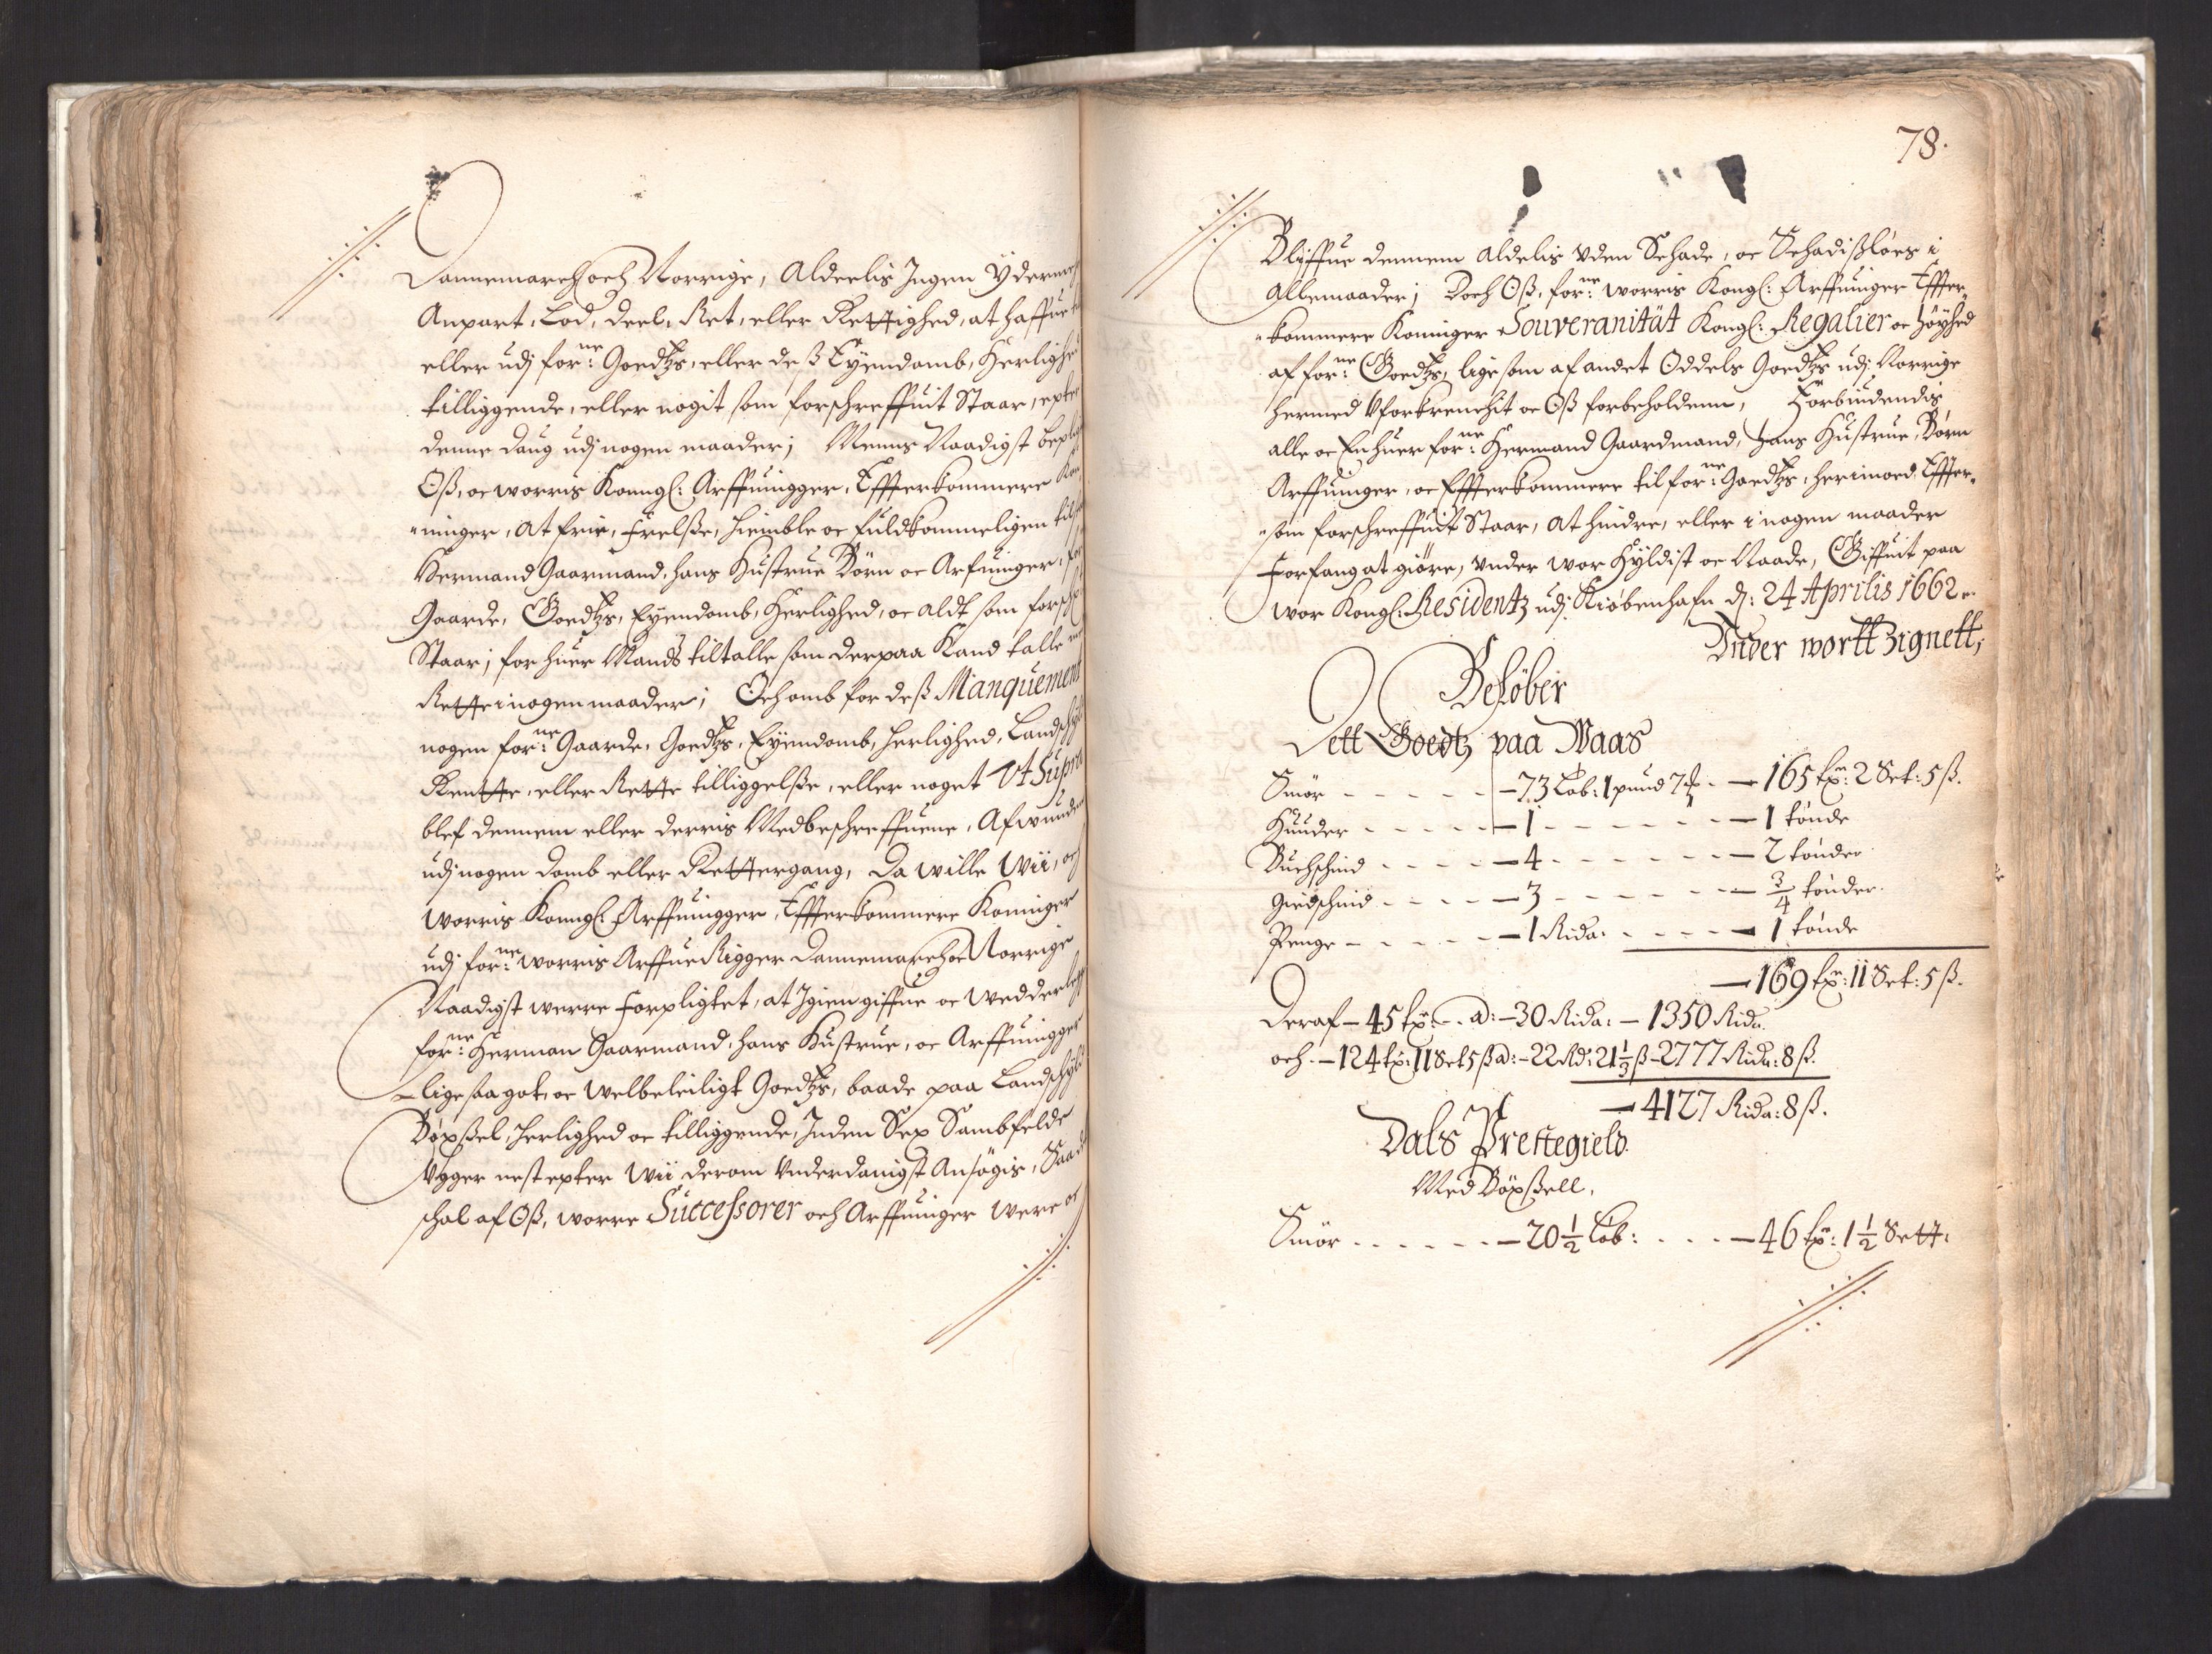 Dannemarch och Norrige, Aldeelis Ingen Ÿderme
Anpart, Lod, deel, Ret, eller Rettighed, at haffue
eller udj for:ne Goedtzs, eller deß Eyendomb, Herlighe
tilliggende, eller nogit som forschreffuit Staar, epter
denne daug udj nogen maader; Menns Naadigst beplig
Oß, oc worris Konngl: Arffuingger, Effterkommere Kon
"ninger, at frie, frelße, Hiemble oc fuldkommeligen til
Hermand Gaarmand, hans Hustrue Börn oc Arfuinger, for
Gaarde, Goedtzs, Eyendomb, Herlighed, oc aldt som forsch
Staar; for huer Mands tiltalle som derpaa Kand talle
Rette i nogen maader; Och omb for deß Manquement
nogen for:ne Gaarde, Goedtzs, Eyendomb, herlighed, Landschÿld
Rentte, eller Rette tilliggelße, eller noget Vt Supra
blef dennem eller derris Medbeschreffuene, Afwunden
udj nogen domb eller Rettergang, da wille Wii, oc
worris Konngl: Arffuingger, Effterkommere Koninger
udj for:ne worris Arffue Rigger Dannemarch oc Norrige
Naadigst werre forpligtet, at Igien giffue oc wedderlegg
for:ne Herman Gaarmand, hans Hustrue, oc Arffuingger
lige saa got, oc welbeleiligt Goedtzs, baade paa Landschÿld
Böxßel, herlighed oc tilliggende, Inden Sex Sambfelde
Vgger nest epter Wii derom Vnderdanigst Ansögis, Saa d
schal af Oß, worre Successorer och Arffuinger were oc
78.
Bliffue dennem Aldelis Vden Schade, oc Schadißlöes i
Allemaader; Doch Oß, for:ne worris Kongl: Arffuinger Effter„
"kommere Koninger Souveranität Kongl: Regalier oc höÿhed
af for:ne Goedtzs, lige som af andet Oddels Goedtzs udj Norrige
hermed Vforkrenchit oc Oß forbeholdenn, Forbiudendis
alle oc Enhuer for:ne Hermand Gaardmand, hans Hustrue, Börn
Arffuinger, oc Effterkommere til for:ne Goedtzs, herimoed, Effter„
"som forschreffuit Staar, at hindre, eller i nogen maader
Forfang at giöre, Vnder wor Hyldist oc Naade, Giffuit paa
wor Kongl: Residentz udj Kiöbenhafn d: 24 Aprilis 1662
Vnder wortt Zignett,
Belöber
Dett Goedtz paa Waas
Smör - - - - - 73 Löb: 1 pund 7 - 165 tr: 2 Set: 5 ß.
Huuder - - - - - 1 - - - - - - 1 tönde
Buchschind - - - - 4 - - - - - 2 tönder
Giedschind - - - - 3 - - - - - 3/4 tönder.
Penge - - - - - 1 Rida: - - - - 1 tönde
- 169 tr: 11 Set: 5 ß.
Deraf - 45 tr: - a: - 30 Rida: - 1350 Rida
och - 124 tr: 11 Set 5 ß a: - 22 Rd: 21 1/3 ß - 2777 Rida: 8 ß.
- 4127 Rida: 8 ß.
Dals Prestegield.
Med Böxßell,
Smör - - - - - - 20 1/2 Löb: - - - 46 tr: 1 1/2 Sett: